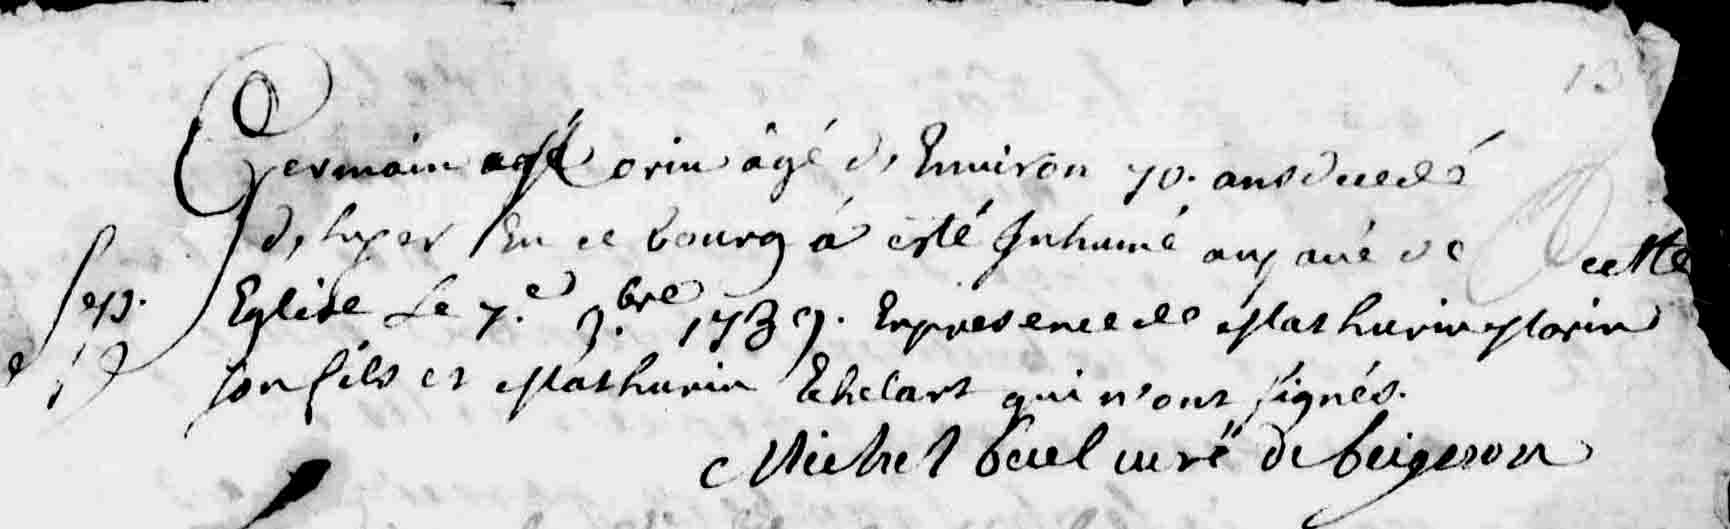 13
Germain Morin âgé d'Environ 70. ans decedé
d'hyer En ce bourg á esté Inhumé au pavé de cette
Sep.
Eglise Le 7.e 9.bre 1739. En presence de Mathurin Morin
son fils et Mathurin Echelart qui n'ont signés.
Michel curé de